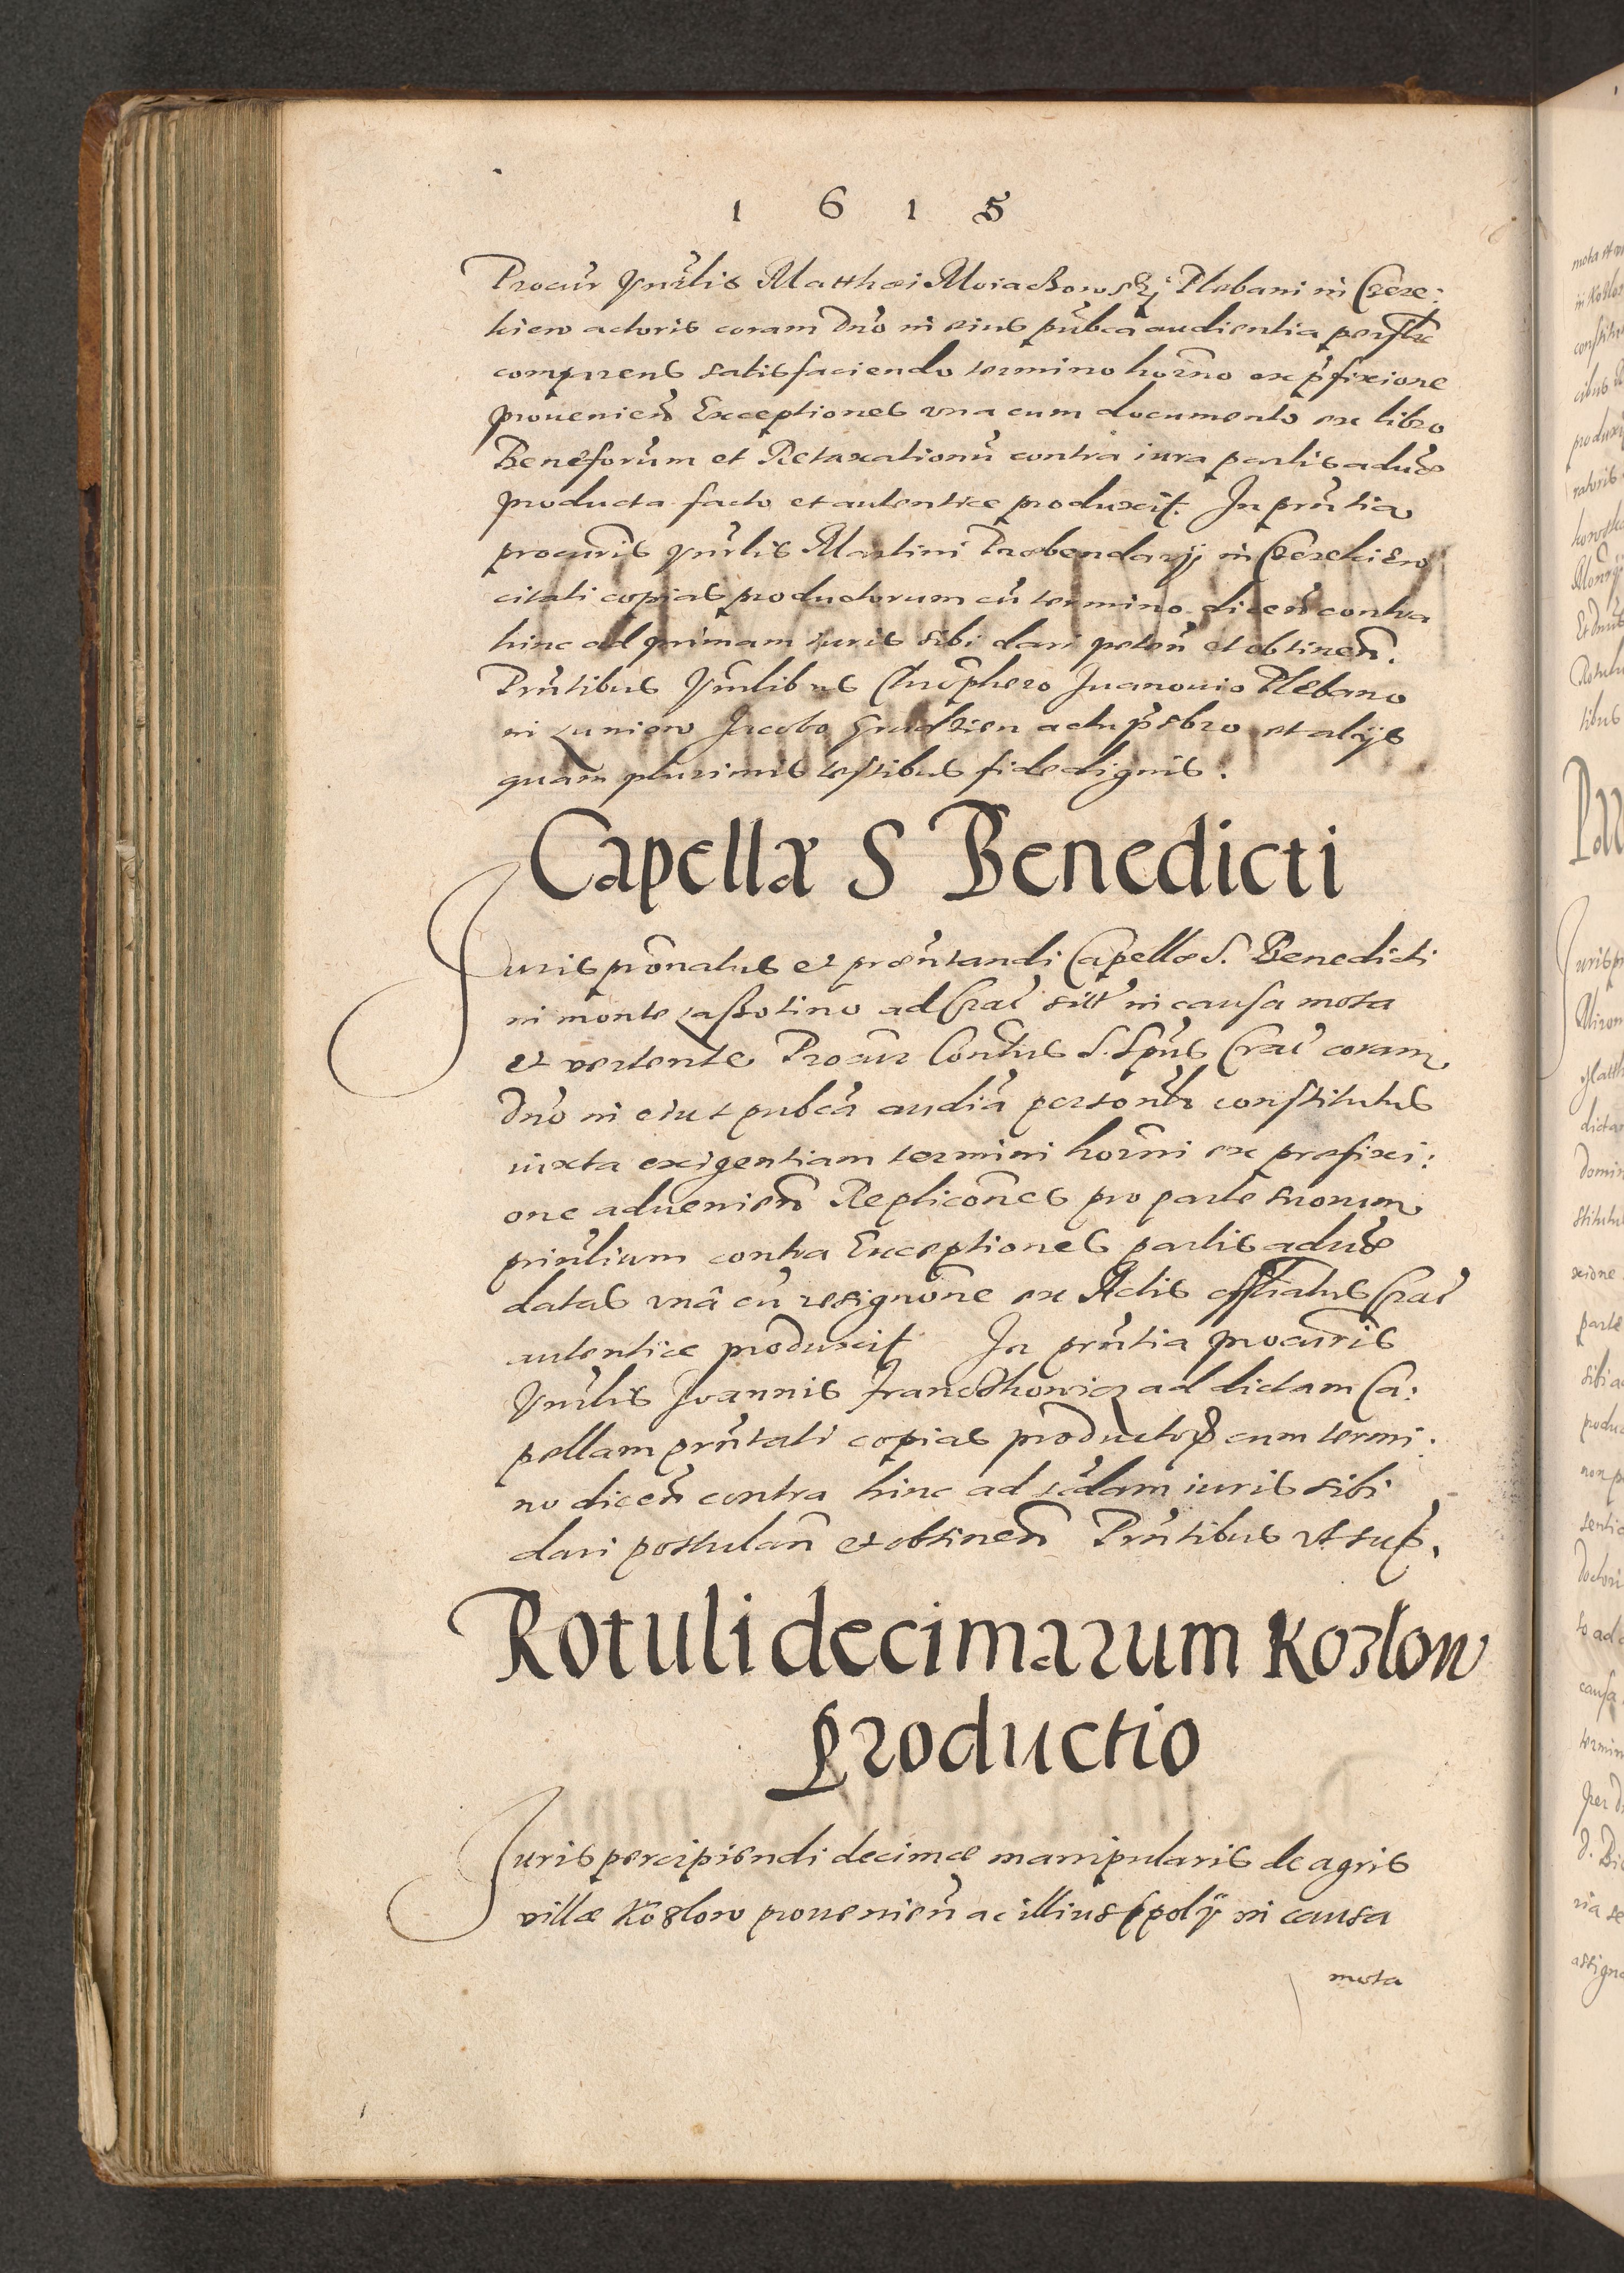 1 6 1 5
Procur Vnrlis Matthæi Moiaczowskÿ Plebani in Czere:
kiew actoris coram Dno in eius pubca audientia personlr
comparens satisfaciendo termino horno ex pfixione
prouenien Exceptiones vna cum documento ex libro
Beneforum et Retaxationu contra iura partis aduersæ
producta facto et autentice produxit. In prntia
procuris Vnrlis Martini Præbendarÿ in Czerekiew
citati copias productorum cu termino dicen contra
hinc ad primam iuris sibi dari peten et obtinen.
Prntibus Vnrlibus Chrophero Iuanouio Plebano
in Luniew Jacobo Grudzien actu psbro et alÿs
quam plurimis testibus fidedignis.
Capellæ S Benedicti
Juris pronatus et præntandi Capellæ S. Benedicti
in monte Lassotino ad Crac sitæ in causa mota
et vertente Procur Contus S. Spus Crac coram
Dno in eius pubca audia personlr constitutus
iuxta exigentiam termini horni ex præfixi:
one aduenien Replicones pro parte suorum
prinlium contra Exceptiones partis aduersæ
datas vnâ cu resignone ex Actis offliatus Crac
autentice produxit In prntia procuris
Vnrlis Joannis Franckowicz ad dictam Ca:
pellam prntati copias productor cum termi:
no dicen contra hinc ad scdam iuris sibi
dari postulan et obtinen Prntibus vt sup.
Rotuli decimarum Kozlow
Productio
Juris percipiendi decimæ manipularis de agris
villæ Kozlow prouenien ac illius spolÿ in causa
mota